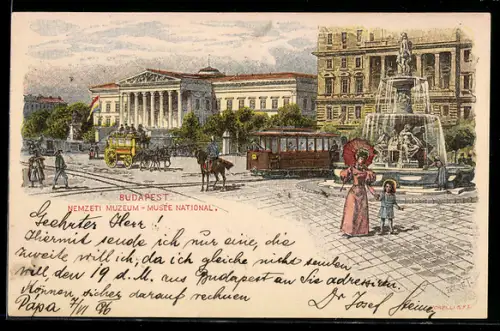 BUDAPEST.
NEMZETI MUZEUM - MUSÉE NATIONAL.
Geehrter Herr!
Hiermit sende ich nur eine, die
zweite will ich, da ich gleiche nicht senden
will den 19 d. M. aus Budapest an Sie adressiren.
Können sicher darauf rechnen
Pápa 7/VII 96
Dr Josef